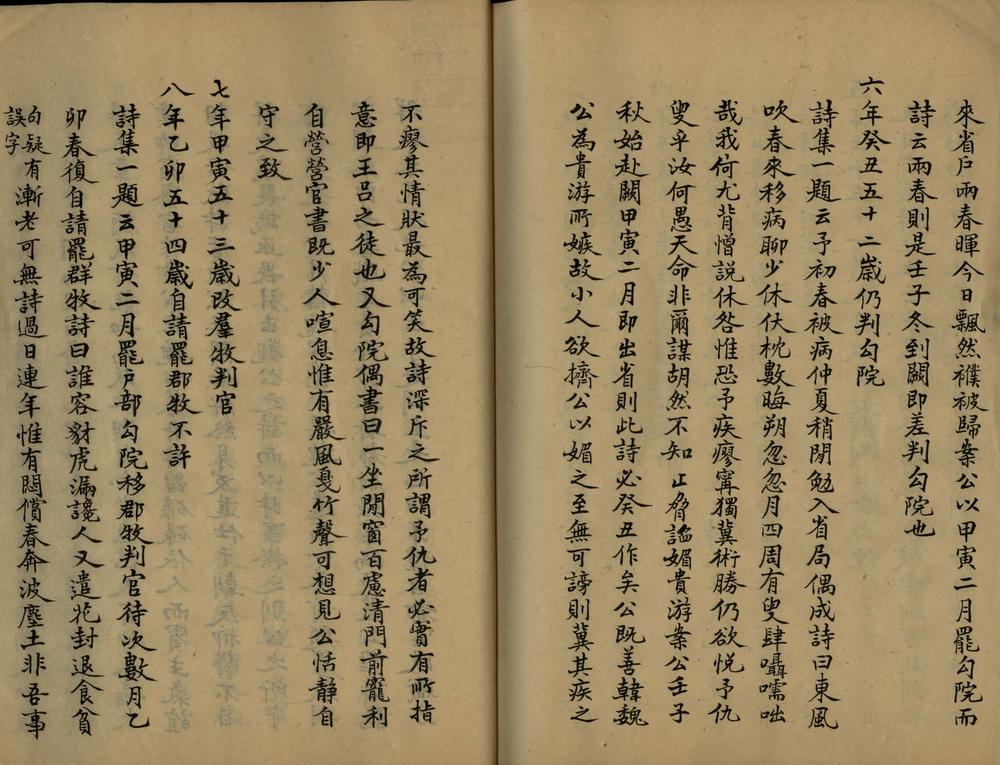 來省戶兩春暉今日飄然襆被歸案公以甲寅二月罷勾院而
詩云兩春則是壬子冬到闕即差判勾院也
六年癸丑五十二歲仍判勾院
詩集一題云予初春被病仲夏稍閒勉入省局偶成詩曰東風
吹春來移病聊少休伏枕數晦朔忽忽月四周有叟肆囁嚅咄
哉我何尤背憎説休咎惟恐予疾瘳寗獨冀術勝仍欲悅予仇
叟乎汝何愚天命非爾謀胡然不知止脅諡媚貴游案公壬子
秋始赴闕甲寅二月即出省則此詩必癸丑作矣公既善韓魏
公為貴游所嫉故小人欲擠公以媚之至無可謗則冀其疾之
不瘳其情狀最為可笑故詩深斥之所謂予仇者必實有所指
意即王呂之徒也又勾院偶書曰一坐閒窗百慮清門前寵利
自營營官書既少人喧息惟有嚴風戛竹聲可想見公恬靜自
守之致
七年甲寅五十三歲改羣牧判官
八年乙卯五十四歲自請罷郡牧不許
詩集一題云甲寅二月罷戶部勾院移郡牧判官待次數月乙
卯春復自請罷群牧詩曰誰容豺虎漏讒人又遣花封退食貧
句疑有
誤字
漸老可無詩過日連年惟有悶償春奔波塵土非吾事